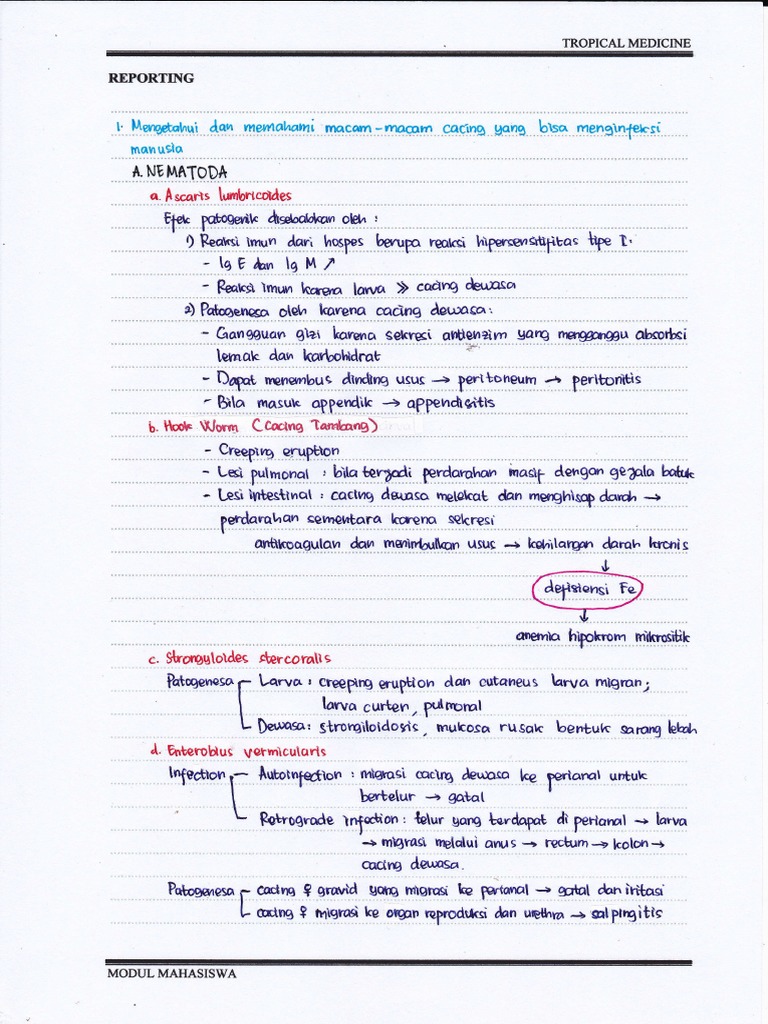 TROPICAL MEDICINE
REPORTING
1. Mengetahui dan memahami macam-macam cacing yang bisa menginfeksi
manusia
A. NEMATODA
a. Ascaris lumbricoides
Efek patogenik disebabkan oleh :
1) Reaksi imun dari hospes berupa reaksi hipersensitifitas tipe I.
- Ig E dan Ig M ↗
- Reaksi imun karena larva >> cacing dewasa
2) Patogenesa oleh karena cacing dewasa:
- Gangguan gizi karena sekresi antienzim yang mengganggu absorbsi
lemak dan karbohidrat
- Dapat menembus dinding usus → peritoneum → peritonitis
- Bila masuk appendik → appendisitis
b. Hook Worm (Cacing Tambang)
- Creeping eruption
- Lesi pulmonal : bila terjadi perdarahan masif dengan gejala batuk
- Lesi intestinal : cacing dewasa melekat dan menghisap darah →
perdarahan sementara karena sekresi
antikoagulan dan menimbulkan usus → kehilangan darah kronis
↓
defisiensi Fe
↓
anemia hipokrom mikrositik
c. Strongyloides stercoralis
Patogenesa - Larva : creeping eruption dan cutaneus larva migran;
larva curten, pulmonal
- Dewasa : strongiloidosis, mukosa rusak bentuk sarang lebah
d. Enterobius vermicularis
Infection - Autoinfection : migrasi cacing dewasa ke perianal untuk
bertelur → gatal
- Retrograde infection : telur yang terdapat di perianal → larva
→ migrasi melalui anus → rectum → kolon →
cacing dewasa.
Patogenesa - cacing ♀ gravid yang migrasi ke perianal → gatal dan iritasi
- cacing ♀ migrasi ke organ reproduksi dan urethra → salpingitis
MODUL MAHASISWA